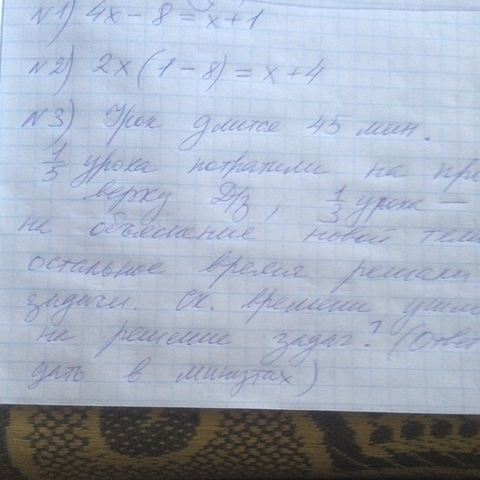 №1) 4x - 8 = x + 1
№2) 2x (1 - 8) = x + 4
№3) Урок длится 45 мин.
1/5 урока потратили на про
верку Д/з, 1/3 урока —
на объяснение новой темы
остальное время решали
задачи. Ск. времени ушло
на решение задач? (Ответ
дать в минутах)